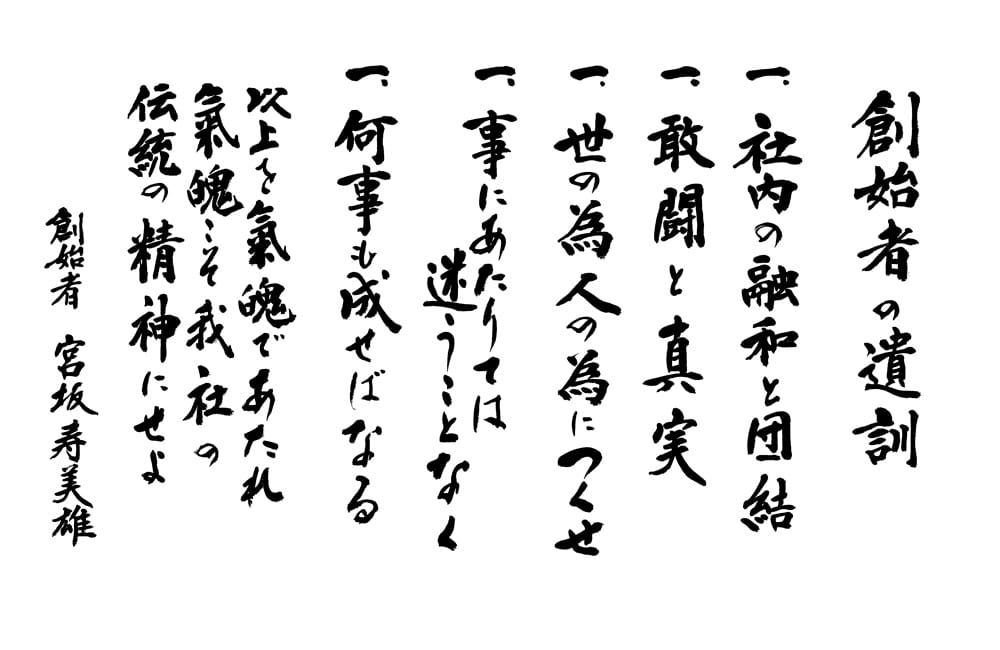 創始者の遺訓
一、社内の融和と団結
一、敢闘と真実
一、世の為人の為につくせ
一、事にあたりては
迷うことなく
一、何事も成せばなる
以上を氣魄であたれ
氣魄こそ我社の
伝統の精神にせよ
創始者 宮坂寿美雄